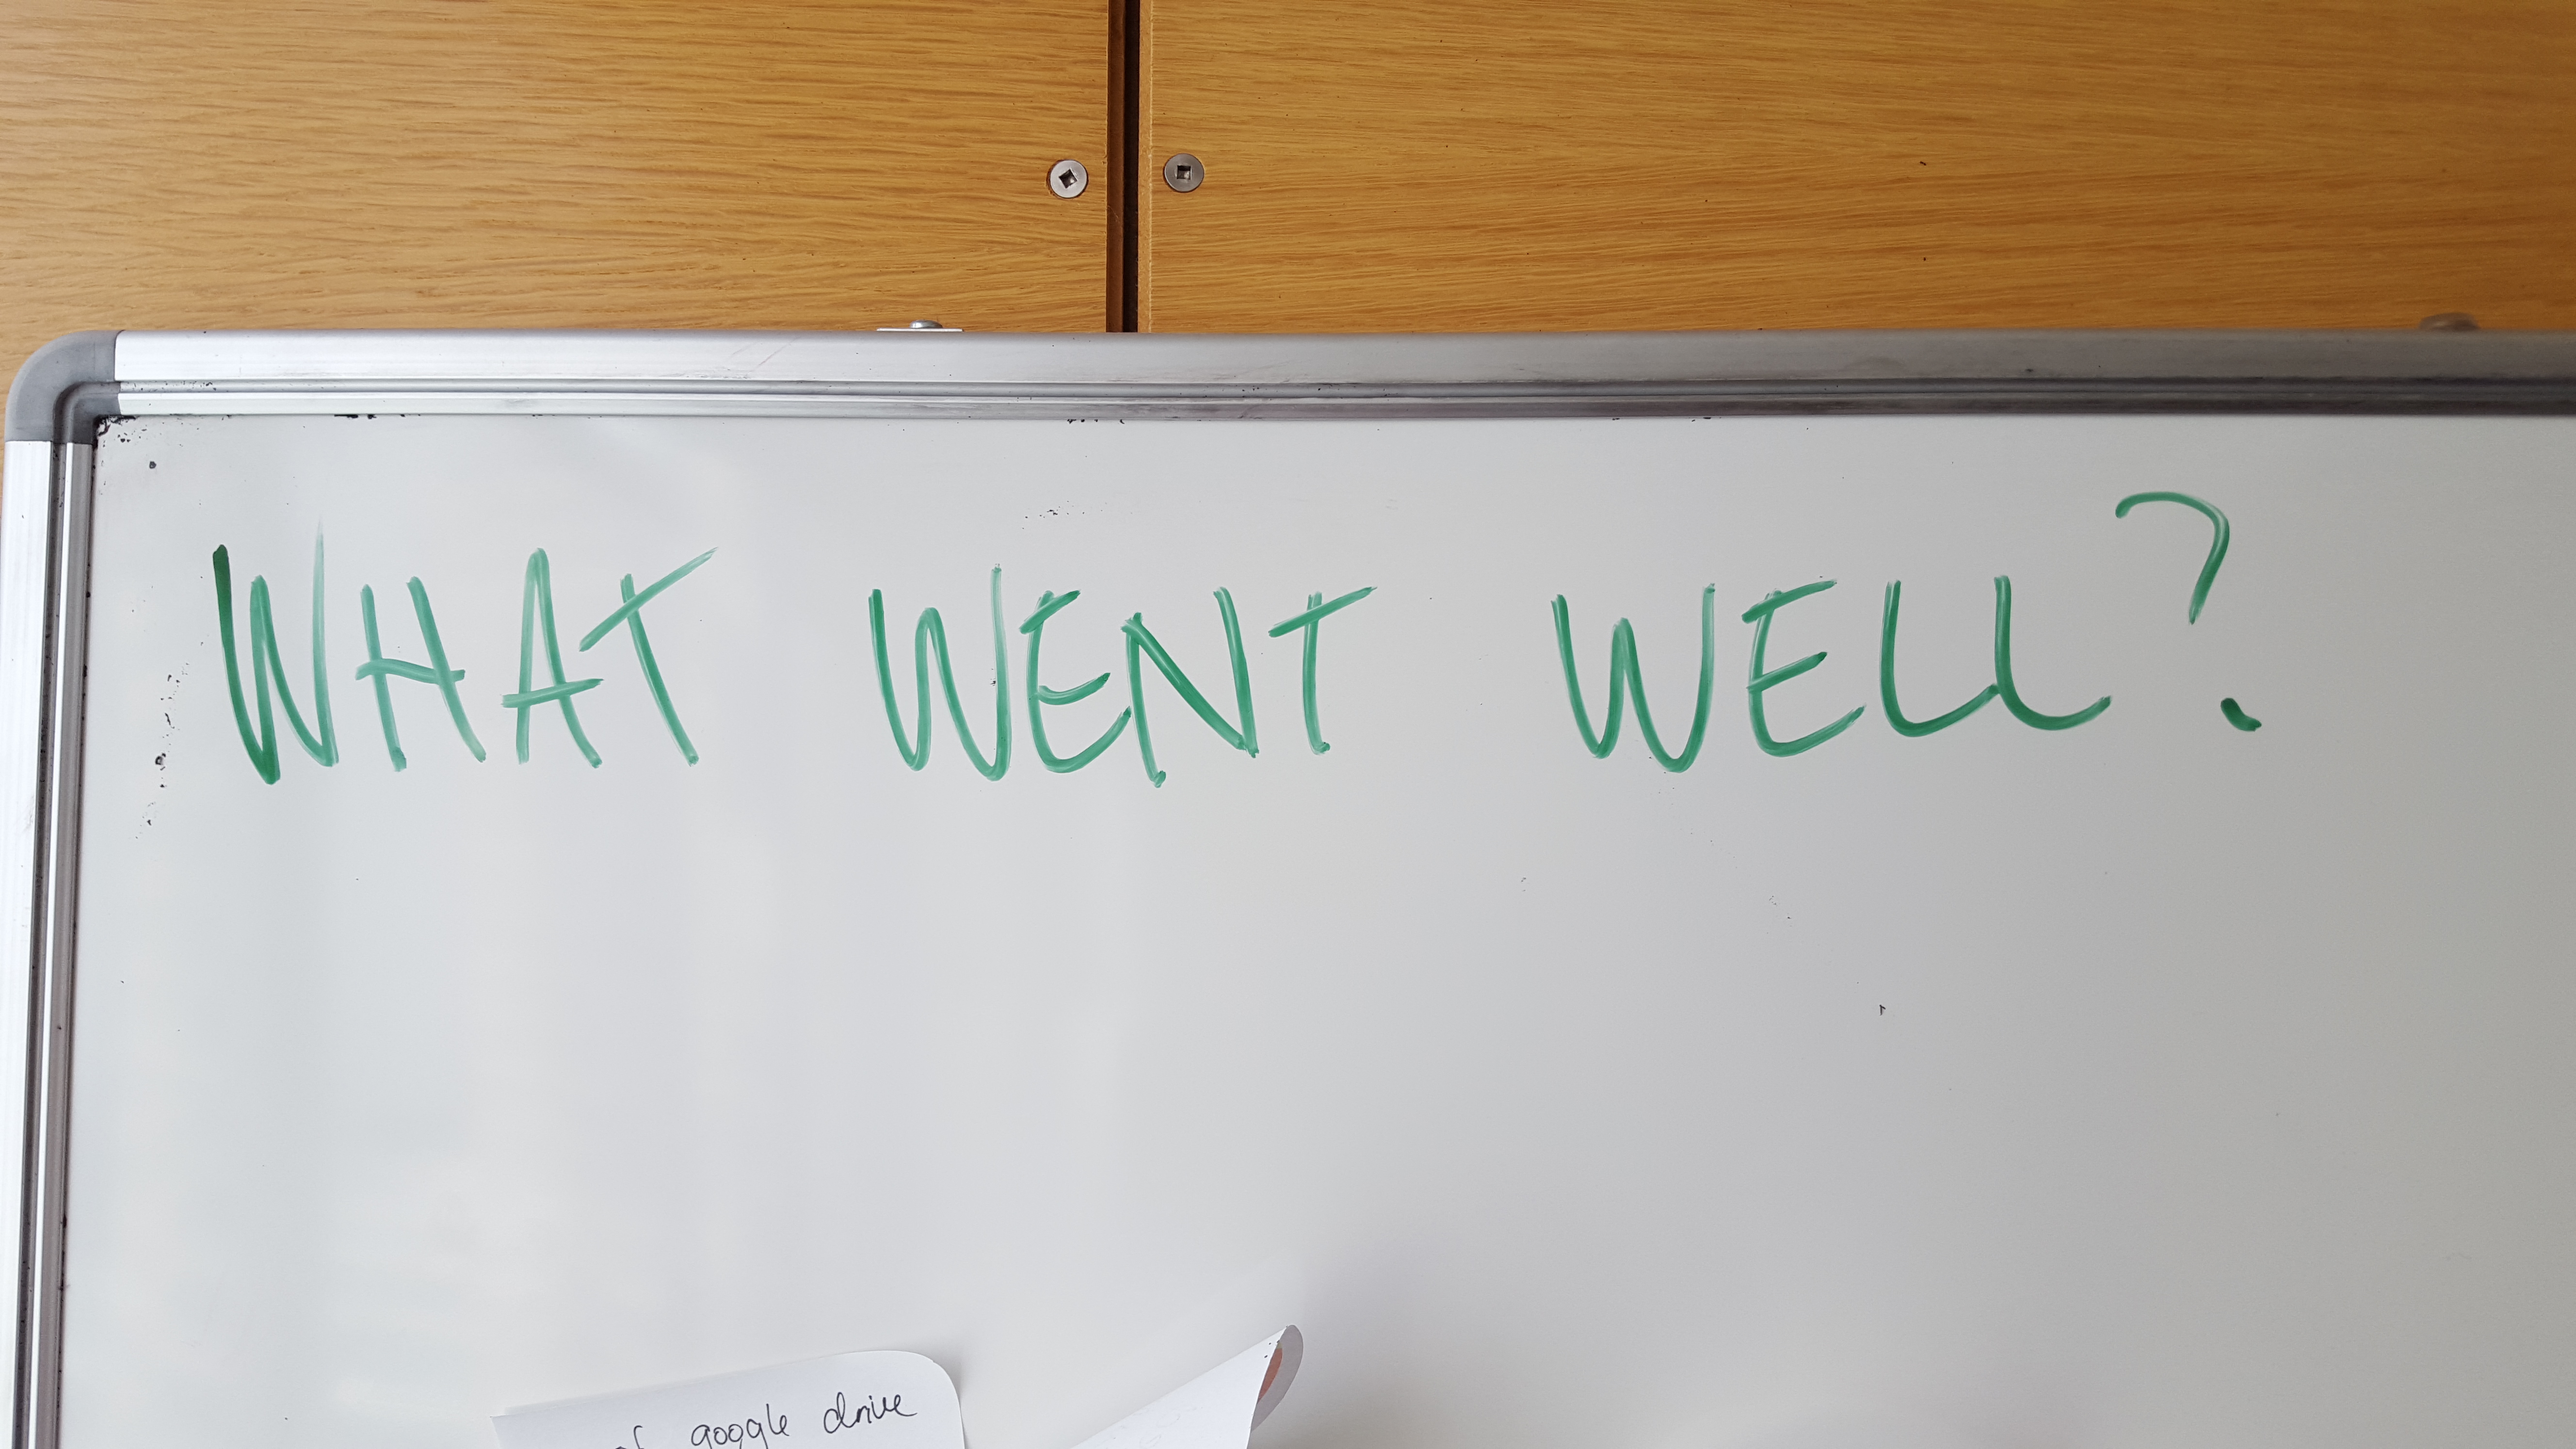 WHAT WENT WELL?
of google drive